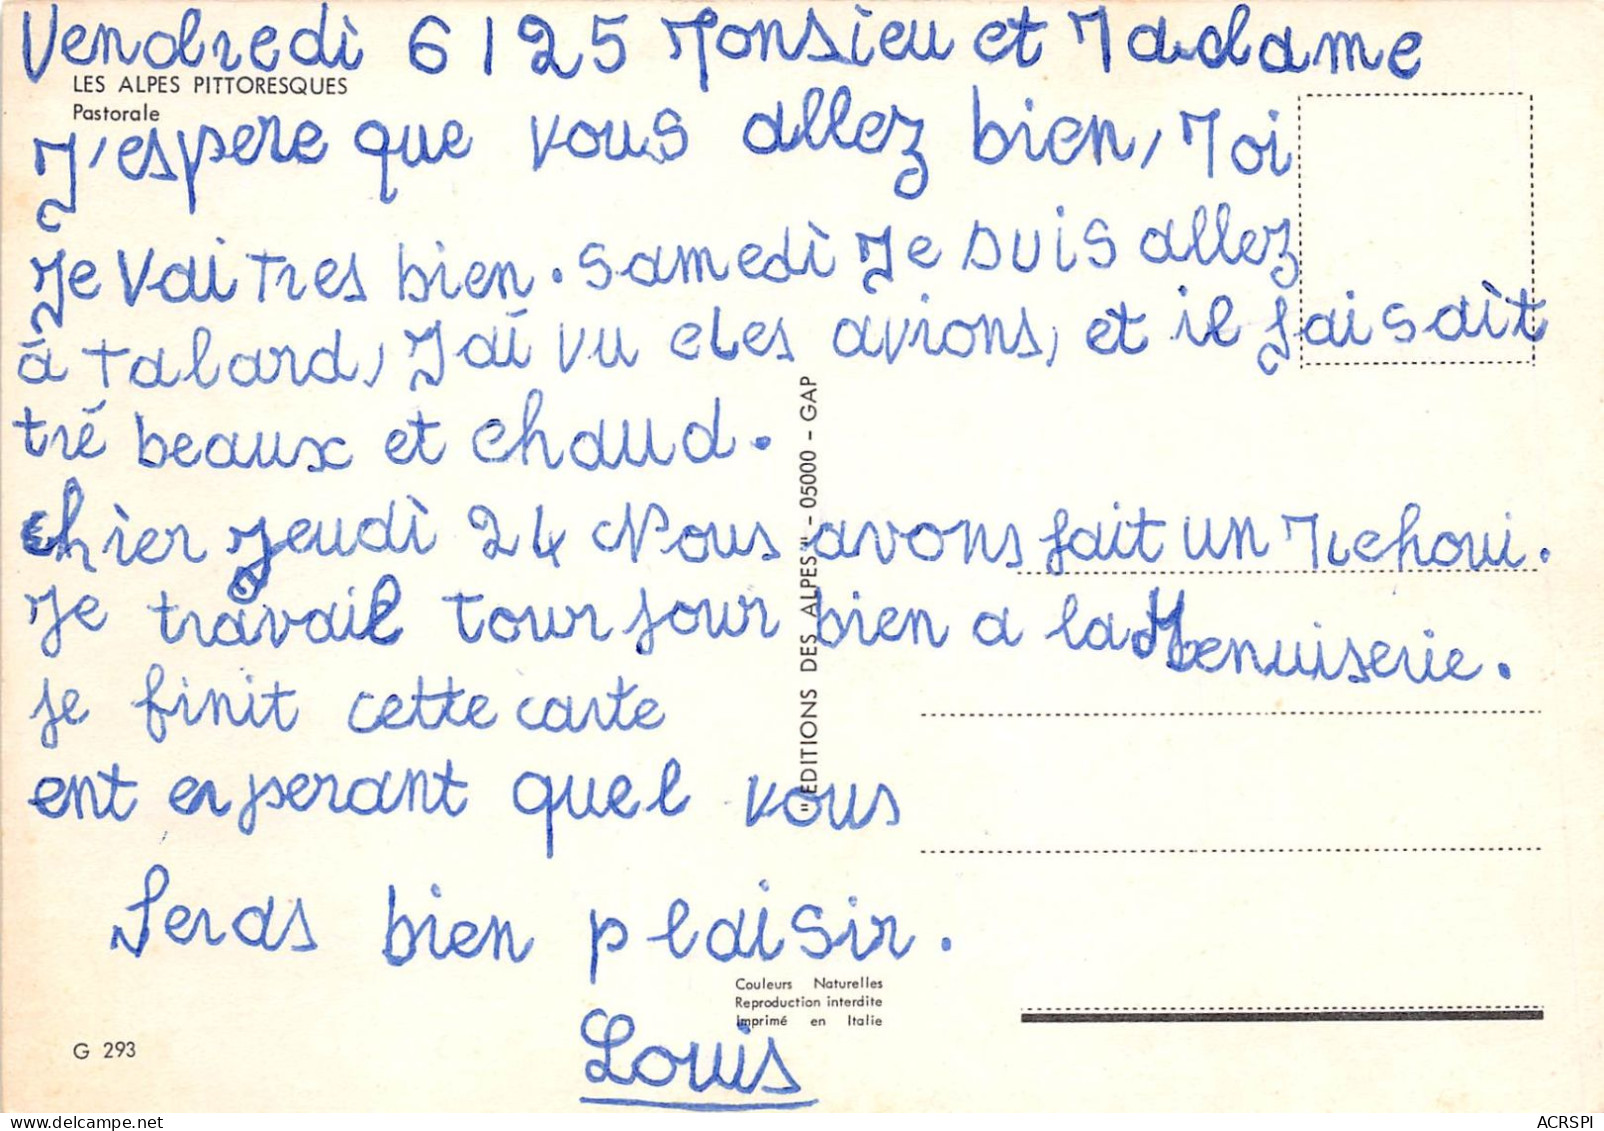 Vendredi 6 / 25 Monsieur et Madame
LES ALPES PITTORESQUES
Pastorale
J'espere que vous allez bien, Moi
Je vai tres bien. samedi Je suis allez
à talard, J'ai vu des avions, et il faisait
tré beaux et chaud.
hier jeudi 24 Nous avons fait un Mechoui.
Je travail tour jour bien a la Menuiserie.
je finit cette carte
ent esperant quel vous
Seras bien plaisir.
Louis
"EDITIONS DES ALPES" - 05000 - GAP
Couleurs Naturelles
Reproduction interdite
Imprimé en Italie
G 293
ACRSPI